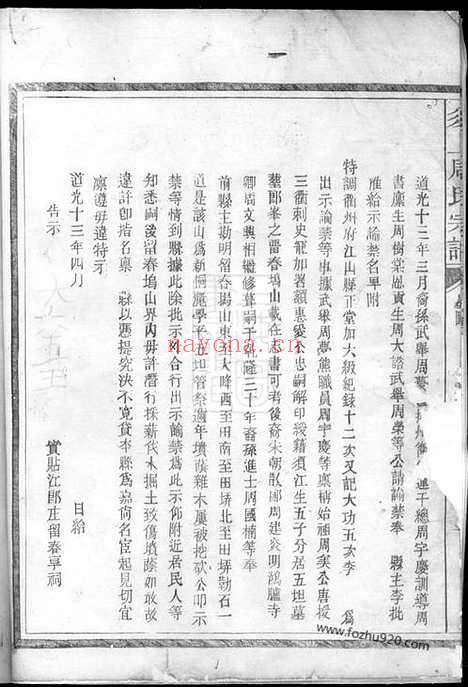 周氏宗譜
道光十三年三月裔孫武舉周夢 千總周宇慶訓導周
書廪生周樹棠恩貢生周大誥武舉周榮等公請諭禁奉 縣主李批
准給示諭禁名單附
特調衢州府江山縣正堂加六級紀錄十二次又記大功五次李 為
出示諭禁等事據武舉周夢熊職員周宇慶等稟稱始祖周矣公唐授
三衢刺史寵加署額惠愛公忠嗣解印綬籍須江生五子分居五坦墓
塟郎峯之晋留春塢山載在志書可考後裔宋朝散郎周建炎明鴻臚寺
卿周文興相繼修葺嗣于乾隆三十年裔孫進士周國楠等奉
前縣主勘明留春塢山東至大峰西至田南至田塝北至田塝勒石一
道是該山為新桐鹿學平五坦管祭邇年墳蔭雜木屢被挖砍公叩示
禁等情到縣據此除批示外合行出示諭禁為此示仰附近居民人等
知悉嗣後留春塢山界內毋許潛行採薪代木掘土致傷墳蔭如敢故
違許卽指名稟 縣以憑提究決不寬貸本縣為嘉尚名宦起見切宜
凜遵毋違特示
道光十三年四月 日給
告示
實貼江郎庄留春享祠
nayona.cn
www.fozhu920.com